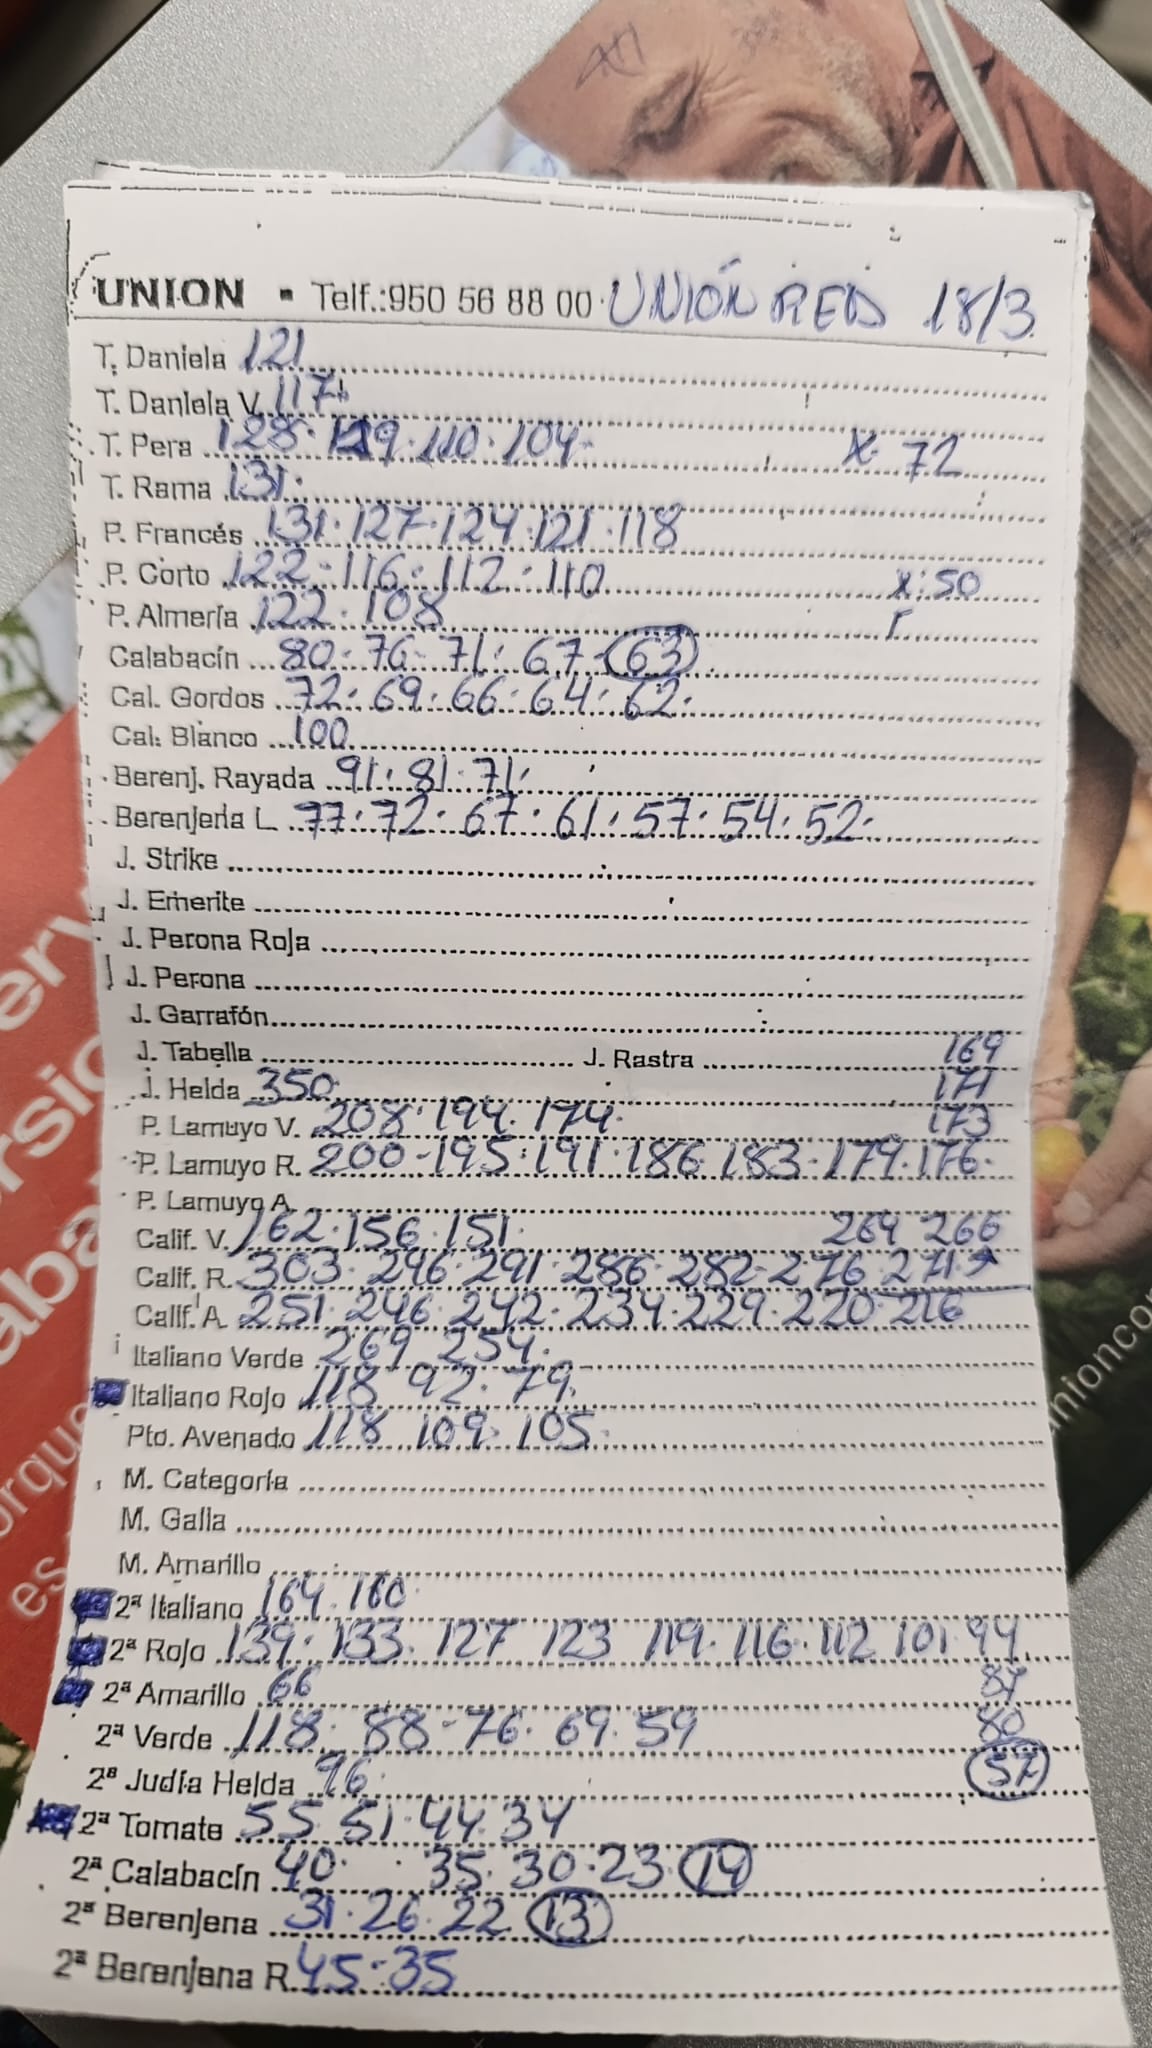 UNION - Telf.:950 56 88 00 UNIÓN RED 18/3
T. Daniela 121
T. Daniela V. 117
T. Pera 128 · 119 · 110 · 104 x· 72
T. Rama 131
P. Francés 131 · 127 · 124 · 121 · 118
P. Corto 122 - 116 · 112 · 110 x: 50
P. Almería 122 · 108 r
Calabacín 80 · 76 - 71 · 67 - 63
Cal. Gordos 72 · 69 · 66 · 64 · 62
Cal. Blanco 100
Berenj. Rayada 91 · 81 · 71
Berenjena L 77 · 72 · 67 · 61 · 57 · 54 · 52
J. Strike
J. Emerite
J. Perona Roja
J. Perona
J. Garrafón
J. Tabella J. Rastra 169
J. Helda 350 171
P. Lamuyo V. 208 · 194 · 174 173
P. Lamuyo R. 200 - 195 · 191 · 186 183 - 179 · 176
P. Lamuyo A.
Calif. V. 162 · 156 · 151 264 266
Calif. R. 303 · 296 · 291 · 286 · 282 - 276 · 271
Calif. A. 251 · 246 · 242 · 234 · 229 · 220 · 216
Italiano Verde 269 254
Italiano Rojo 118 92 · 79
Pto. Avenado 118 109 · 105
M. Categoría
M. Galia
M. Amarillo
2ª Italiano 164 · 160
2ª Rojo 139 · 133 · 127 123 119 · 116 · 112 101 · 94
2ª Amarillo 66 87
2ª Verde 118 · 88 - 76 · 69 · 59 80
2ª Judía Helda 96 57
2ª Tomate 55 51 · 44 · 34
2ª Calabacín 40 · 35 · 30 · 23 19
2ª Berenjena 31 · 26 · 22 13
2ª Berenjena R. 45 · 35